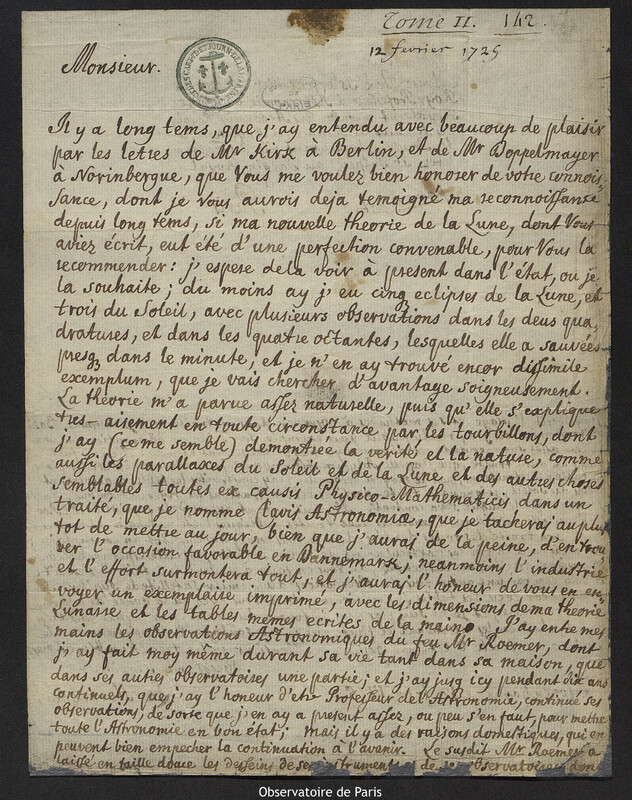 Tome II. 142.
12 fevrier 1725
Monsieur.
Il y a long tems, que j'ay entendu avec beaucoup de plaisir
par les letres de Mr Kirk à Berlin, et de Mr Doppelmayer
à Norinbergue, que Vous me voulez bien honorer de votre connois-
sance, dont je Vous aurois deja temoigné ma reconnoissance
depuis long tems, si ma nouvelle theorie de la Lune, dont Vous
aviez écrit, eut été d'une perfection convenable, pour Vous la
recommender: j'espere de la voir à present dans l'état, ou je
la souhaite; du moins ay j'eu cinq eclipses de la Lune, et
trois du Soleil, avec plusieurs observations dans les deus qua-
dratures, et dans les quatre octantes, lesquelles elle a sauvées
presq; dans le minute, et je n'en ay trouvé encor dissimile
exemplum, que je vais chercher d'avantage soigneusement.
La theorie m'a parue assez naturelle, puis qu'elle s'explique
tres-aisement en toute circonstance par les tourbillons, dont
j'ay (ce me semble) demontrée la verité et la nature, comme
aussi les parallaxes du Soleil et de la Lune et des autres choses
semblables toutes ex causis Physico-Mathematicis dans un
traité, que je nomme Clavis Astronomiæ, que je tacheraj au plu
tot de mettre au jour, bien que j'auraj de la peine, d'en trou
ver l'occasion favorable en Dannemark; neanmoins l'industrie
et l'effort surmontera tout, et j'auraj l'honeur de vous en en-
voyer un exemplaire imprimé, avec les dimensions de ma theorie
Lunaire et les tables mêmes ecrites de la main. J'ay entre mes
mains les observations Astronomiques du feu Mr Roemer, dont
j'ay fait moy même durant sa vie tant dans sa maison, que
dans ses autres observatoires une partie; et j'ay jusq icy pendant dix ans
continuels, que j'ay l'honeur d'etre Professeur de l'Astronomia, continué ses
observations, de sorte que j'en ay a present assez, ou peu s'en faut, pour mettre
toute l'Astronomie en bon état; mais il y a des raisons domestiques, qui en
peuvent bien empecher la continuation à l'avenir. Le susdit Mr Roemer a
laissé en taille douce les desseins de ses instruments et de ses observatoires dont
Observatoire de Paris